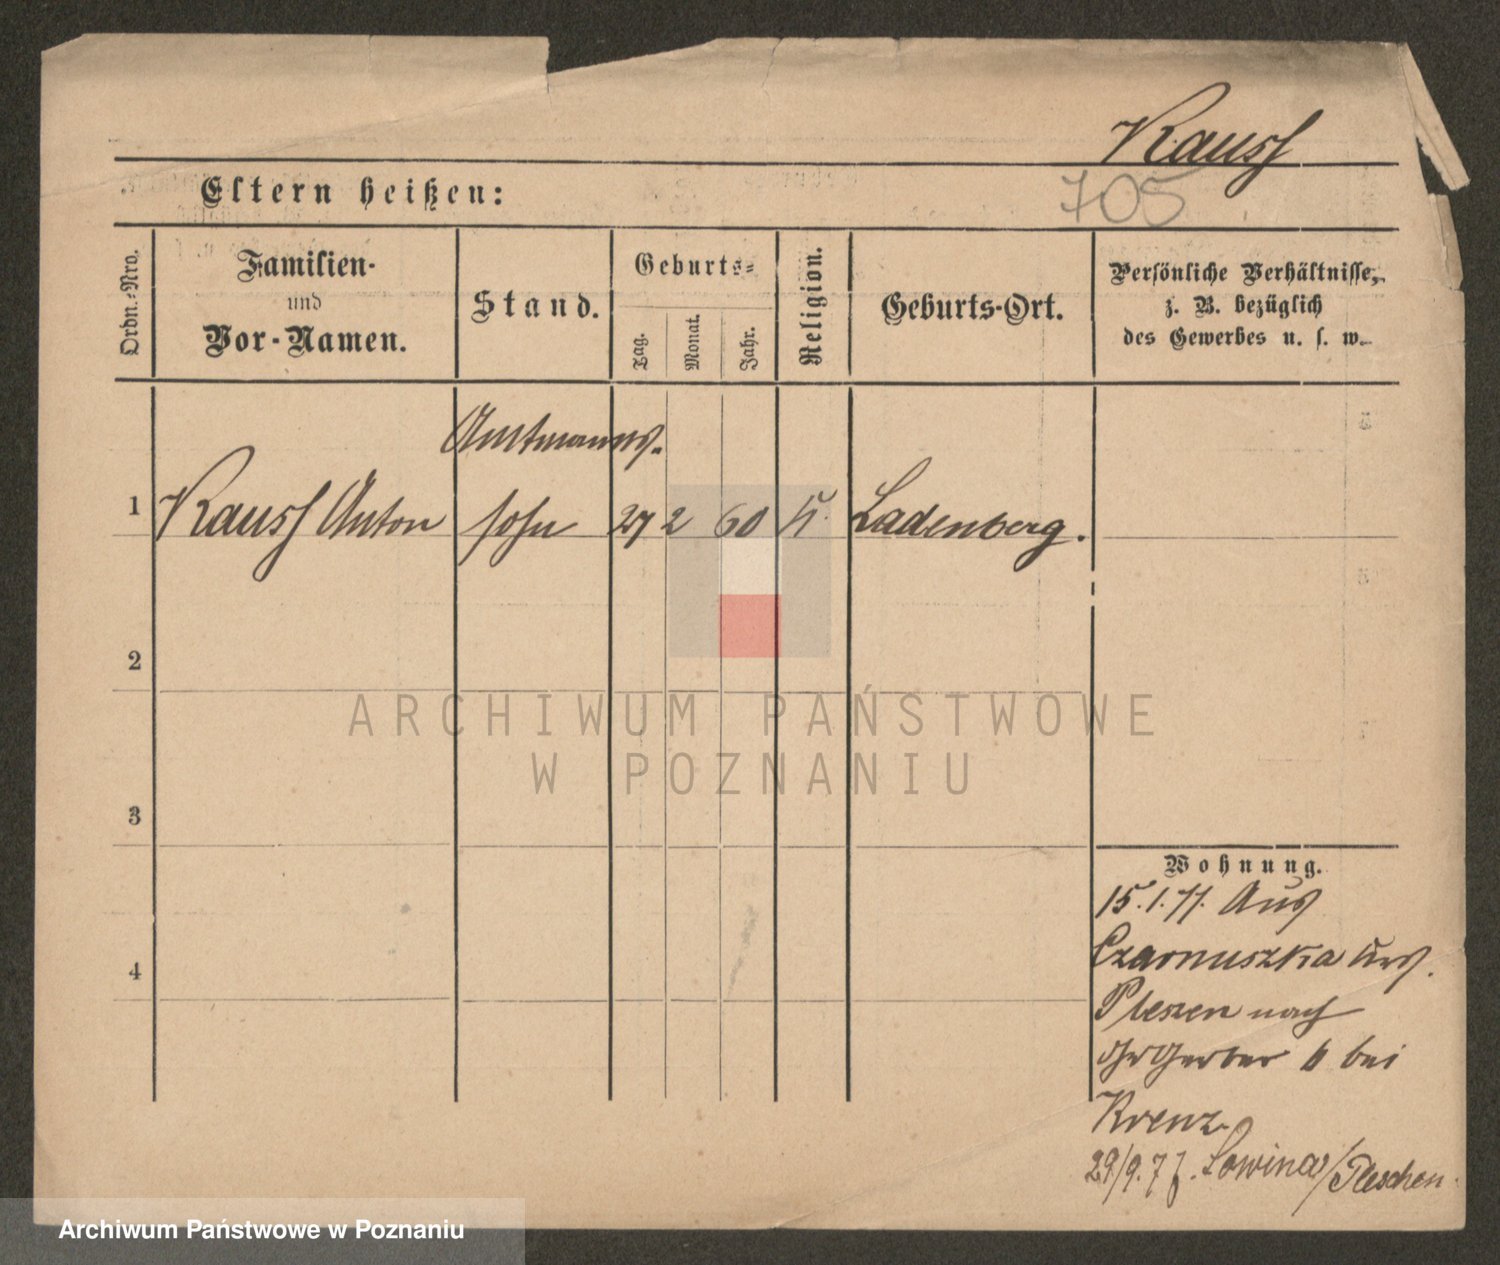 Kausf
705
Eltern heißen:
Ordn.-Nro.
Familien-
und
Vor-Namen.
Stand.
Geburts-
Tag.
Monat.
Jahr.
Religion.
Geburts-Ort.
Persönliche Verhältnisse,
z. B. bezüglich
des Gewerbes u. s. w.
Amtmanns-
1 Kausf Anton sohn 27 2 60 k. Ladenberg.
2
3
4
Wohnung.
15.1.77. Aus
Czarnuszka Krs.
Pleszen nach
Gr Gerber b bei
Krenz
29/9.77. Lowina/Pleschen.
ARCHIWUM PAŃSTWOWE
W POZNANIU
Archiwum Państwowe w Poznaniu